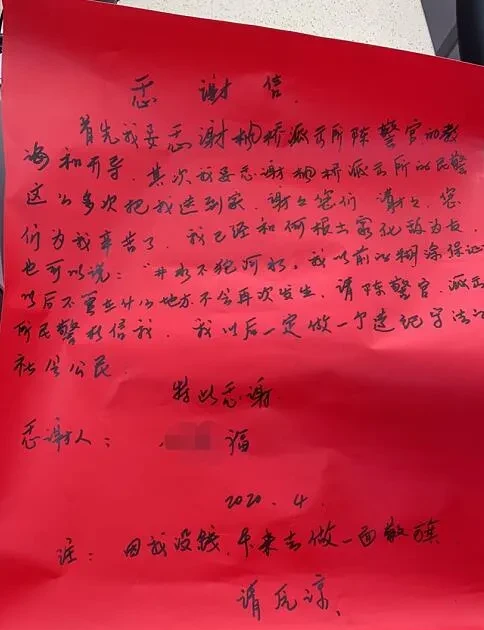 感谢信
首先我要感谢枫桥派出所陈警官的教
诲和开导。其次我要感谢枫桥派出所的民警
这么多次把我送到家。谢谢您们 谢谢,您
们为我辛苦了。我已经和何根土家化敌为友,
也可以说:"井水不犯河水,我以前的糊涂保证
以后不管在什么地方不会再次发生,请陈警官、派出
所民警相信我。我以后一定做一个遵纪守法的
社会公民
特此感谢
感谢人: 福
2020.4.
注:因我没钱,本来去做一面敬旗
请原谅、